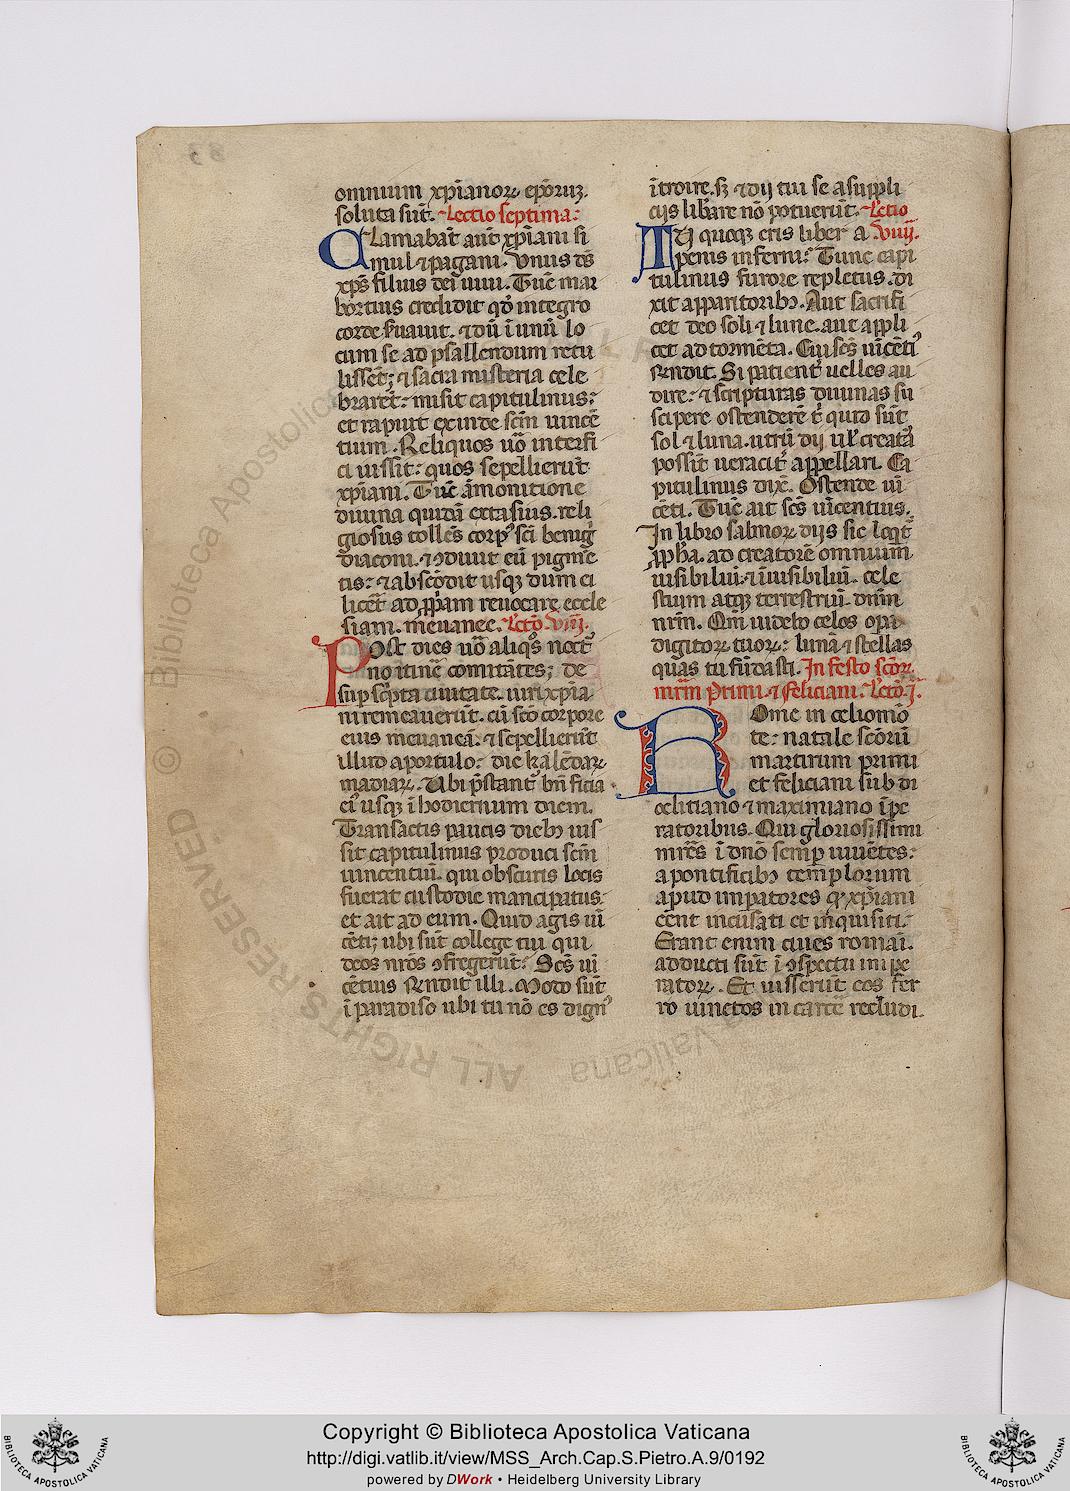 omnium xp̄ianoꝝ ep̄oꝝ uız.
soluta sūt. Lectio septima:
Clamabāt aūt xp̄iani si
mul ⁊ pagani. Vnus ē ds̄
xp̄s filius dei uiui. Tūc mar
credidit qđ integro
corde ẜuauit. ⁊ dū ī unū lo
cum se ad psallendum retu
lissēt; ⁊ sacra misteria cele
braret: misit capitulinus:
et rapuit exinde sc̄m uincē
tium. Reliquos uō interfi
ci iussit: quos sepellierūt
xp̄iani. Tūc āmonitione
diuina quidā extasius. reli
giosus collēs corpꝰ sc̄i benigͥ
diaconi. ⁊ ꝯdiuit eū pigmē
tis: ⁊ abscōdit usqꝫ dum ci
licēt ad ꝓpam reuocare eccle
siam. meuanee. Lctō viıı.
Post dies uō aliqͦs noctͥ
no itinē comitātes; de
sup sc̄pta ciuitate. uiri xp̄ia
ni remeauerūt. cū scō corpore
eius meuaneā. ⁊ sepellierūt
illud a portulo: die kalēdaꝝ
madiaꝝ. Vbi p̄stant bn̄ficia
eiꝰ usqꝫ ī hodiernum diem.
Transactis paucis diebꝫ ius
sit capitulinus produci sc̄m
uincentiū. qui obscuris locis
fuerat custodie mancipatus.
et ait ad eum. Quid agis uī
cēti; ubi sūt college tui qui
deos nr̄os ꝯfregerūt: Scs̄ uī
cētius rn̄dit illi. Modo sūt
ī paradiso ubi tu nō es dignꝰ
ītroire. sꝫ ⁊ dij tui se a suppli
cijs lib̄are nō potuerūt. Lētio
Tu quoqꝫ eris liber a viiij.
penis inferni: Tunc capi
tulinus furore repletus. di
xit apparitoribꝫ. Aut sacrifi
cet deo soli ⁊ lune. aut appli
cet ad tormēta. Cui scs̄ uīcētiꝰ
rn̄dit. Si patient̄ uelles au
dire: ⁊ scripturas diuinas su
scipere ostenderē tͥ quid sūt
sol ⁊ luna. utrū dij uł creata
possīt ueracitͥ appellari. Ca
pitulinus dix̄. Ostende uī
cēti. Tūc ait scs̄ uīcentius.
In libro salmoꝝ dijs sic loqͥt
ꝓpha. ad creatorē omnium
uisibiliū. ⁊ īuisibiliū. cele
stium atqꝫ terrestriū. dn̄m
nr̄m. Qm̄ uidebo celos opa
digitoꝝ tuoꝝ: lunā ⁊ stellas
quas tu fūdasti. In festo sc̄oꝝ
mr̄m Primi. ⁊ feliciani. Lctō .ı.
Rome in celio mō
te: natale sc̄orū
martirum primi
et feliciani sub di
oclitiano ⁊ maximiano īpe
ratoribus. Qui gloriosissimi
mr̄es ī dn̄o semp̄ uiuētes:
a pontificibꝫ templorum
apud impatores qͣ xp̄iani
eēnt incusati et inquisiti:
Erant enim ciues romāi.
adducti sūt ī ꝯspectu impe
ratoꝝ. Et iusserūt eos fer
ro uinctos in carcē recludi.
Copyright © Biblioteca Apostolica Vaticana
http://digi.vatlib.it/view/MSS_Arch.Cap.S.Pietro.A.9/0192
powered by DWork • Heidelberg University Library
BIBLIOTECA APOSTOLICA VATICANA
BIBLIOTECA APOSTOLICA VATICANA